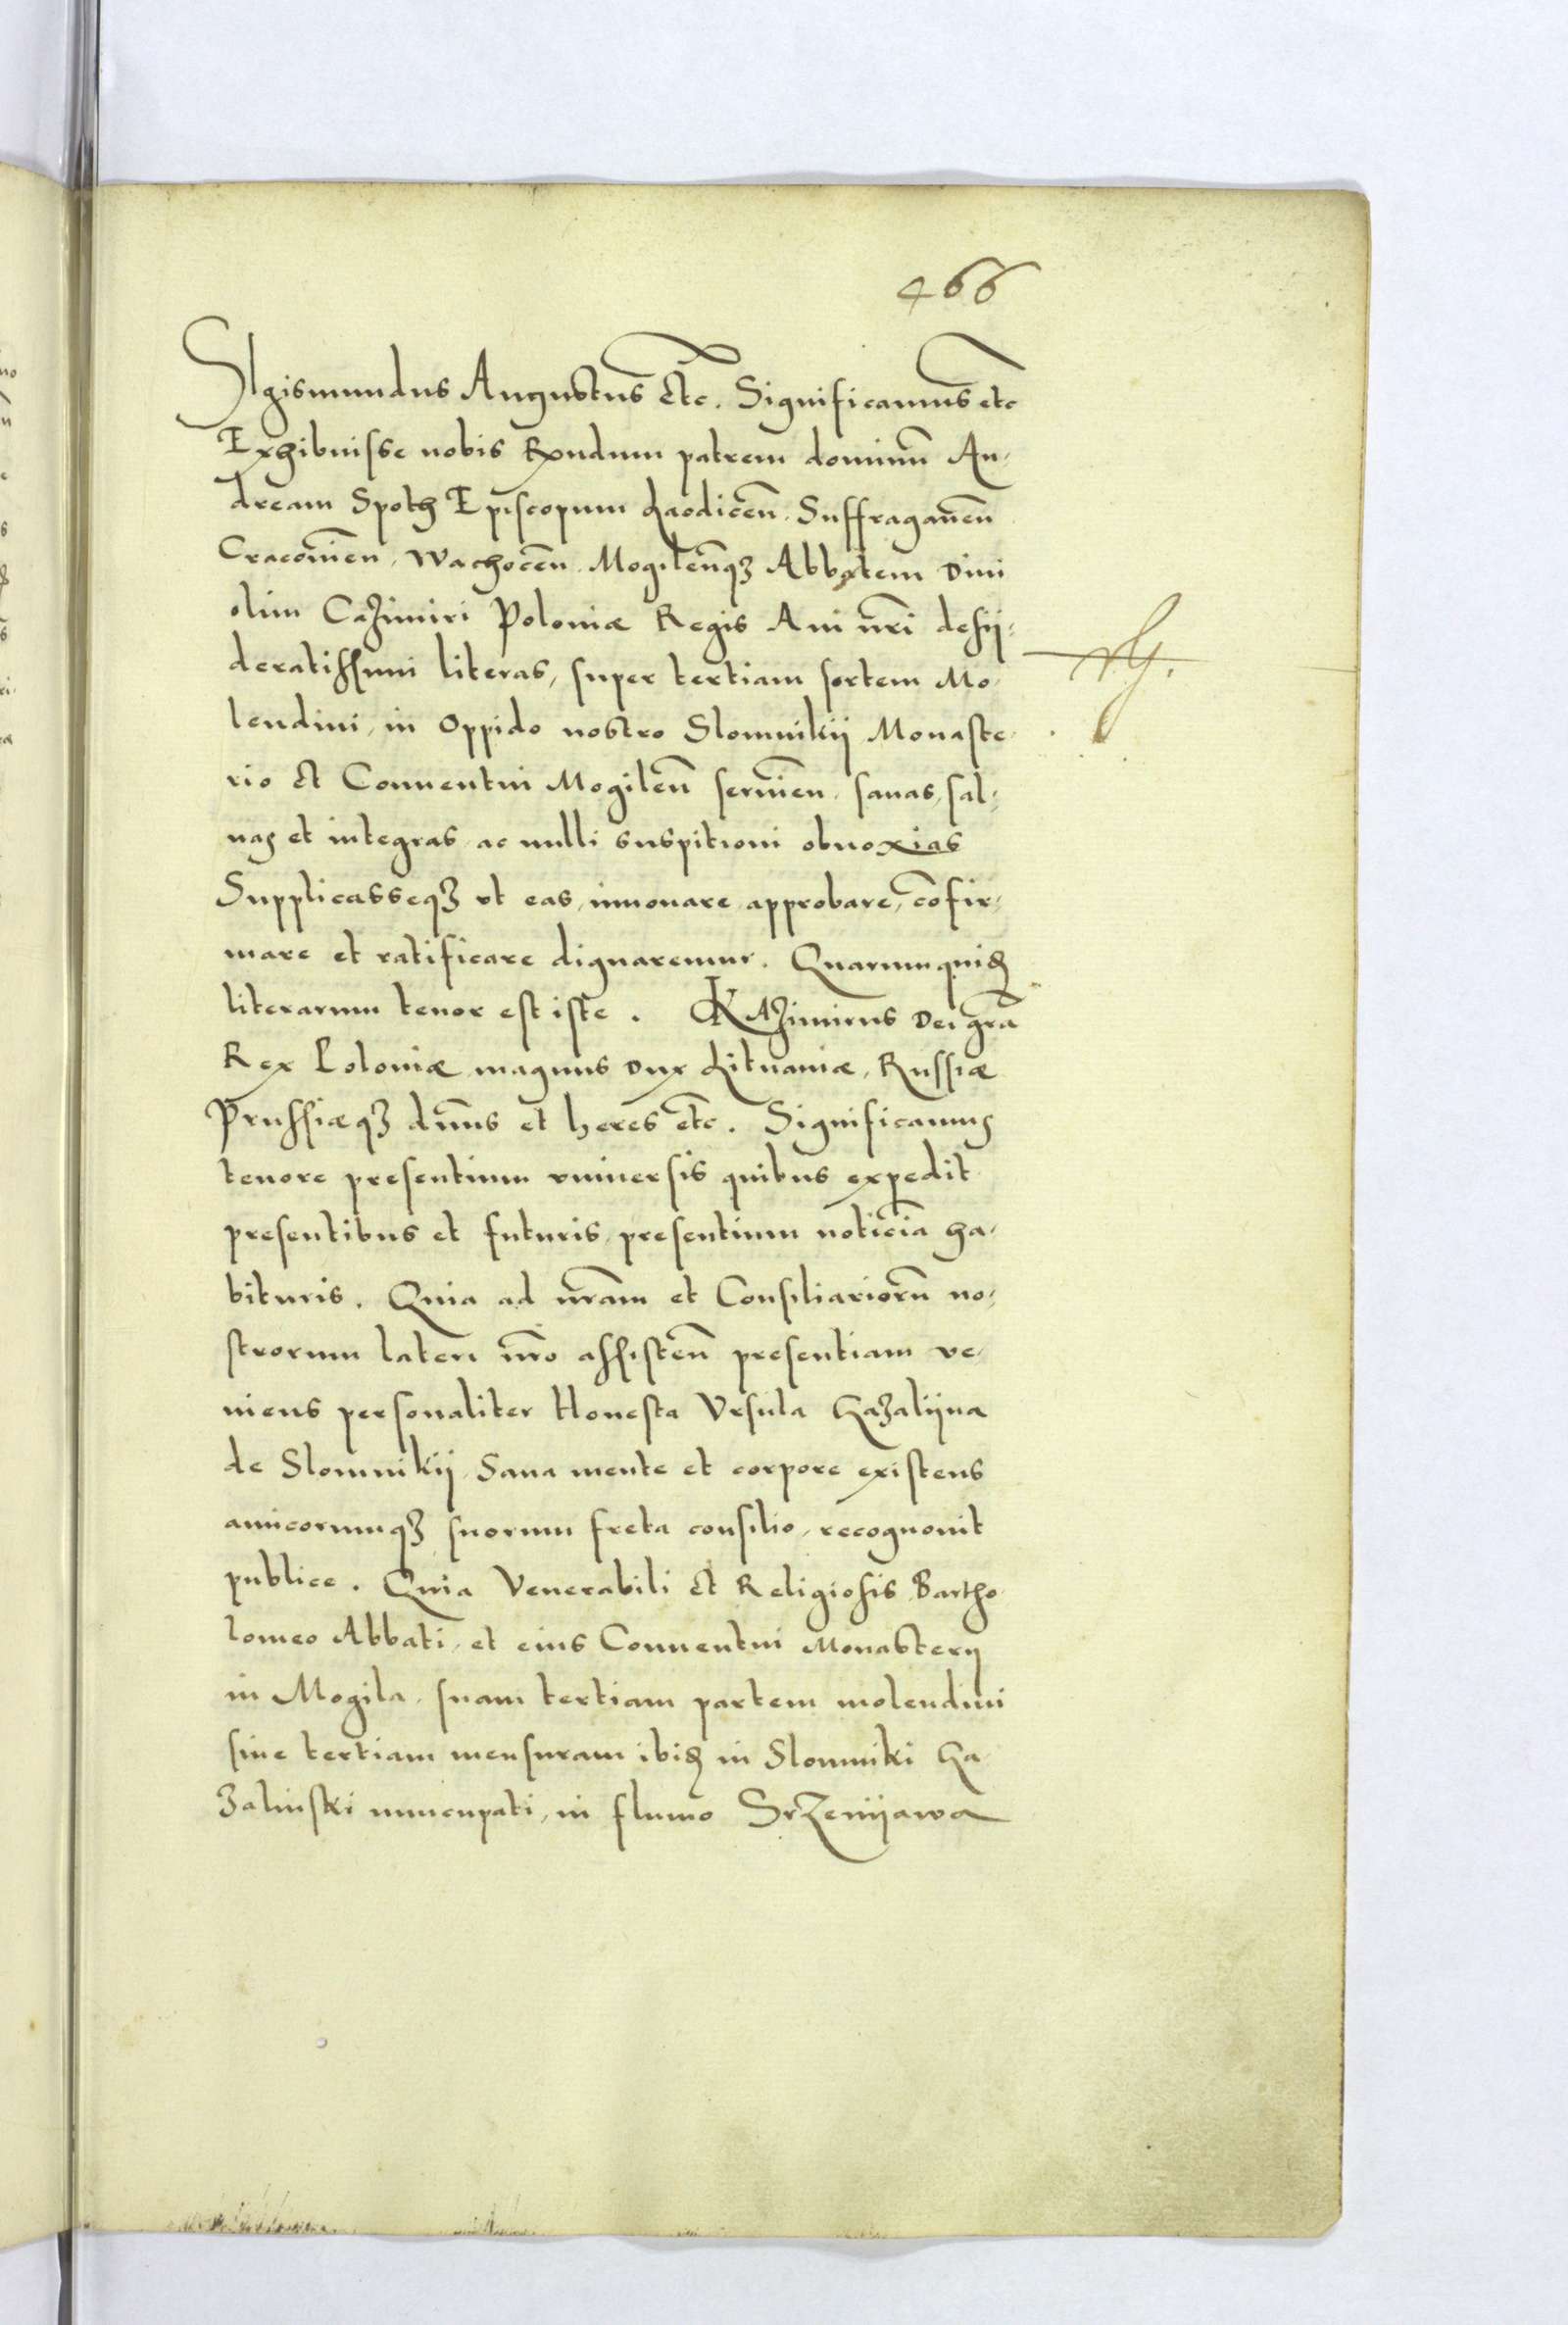 466
SIgismundus Augustus etc. Significamus etc
Exhibuisse nobis Rndum patrem dominū An-
dream Spoth Episcopum Laodiceñ. Suffraganeū
Cracovieñ, Wachoceñ. Mogileñqꝫ Abbatem Divi
olim Cazimiri Poloniæ Regis Avi nri desÿ-
deratissimi literas, super tertiam sortem Mo-
lendini, in oppido nostro Slomnikÿ Monaste-
rio et Conuentui Mogileñ seruieñ. sanas, sal-
uas et integras ac nulli suspitioni obnoxias
Supplicasseqꝫ vt eas, innouare approbare, cōfir-
mare et ratificare dignaremur. Quarumquid
literarum tenor est iste. KAzimirus Dei gra
Rex Poloniæ magnus Dux Lituaniæ, Russiæ
Prussiæqꝫ dnns et heres etc. Significamus
tenore presentium vniuersis quibus expedit
presentibus et futuris, presentium noticiā ha-
bituris. Quia ad nram et Consiliariorū no-
strorum lateri nro assisteñ presentiam ve-
niens personaliter Honesta Vrsula Gazalÿna
de Slomnikÿ, Sana mente et corpore existens
amicorumqꝫ suorum freta consilio, recognouit
publice. Quia Venerabili et Religiosis Bartho-
lomeo Abbati, et eius Conuentui Monasterij
in Mogila, suam tertiam partem molendini
siue tertiam mensuram ibid in Slomniki Ga-
zalinski nuncupati, in fluuio Srzenijawa